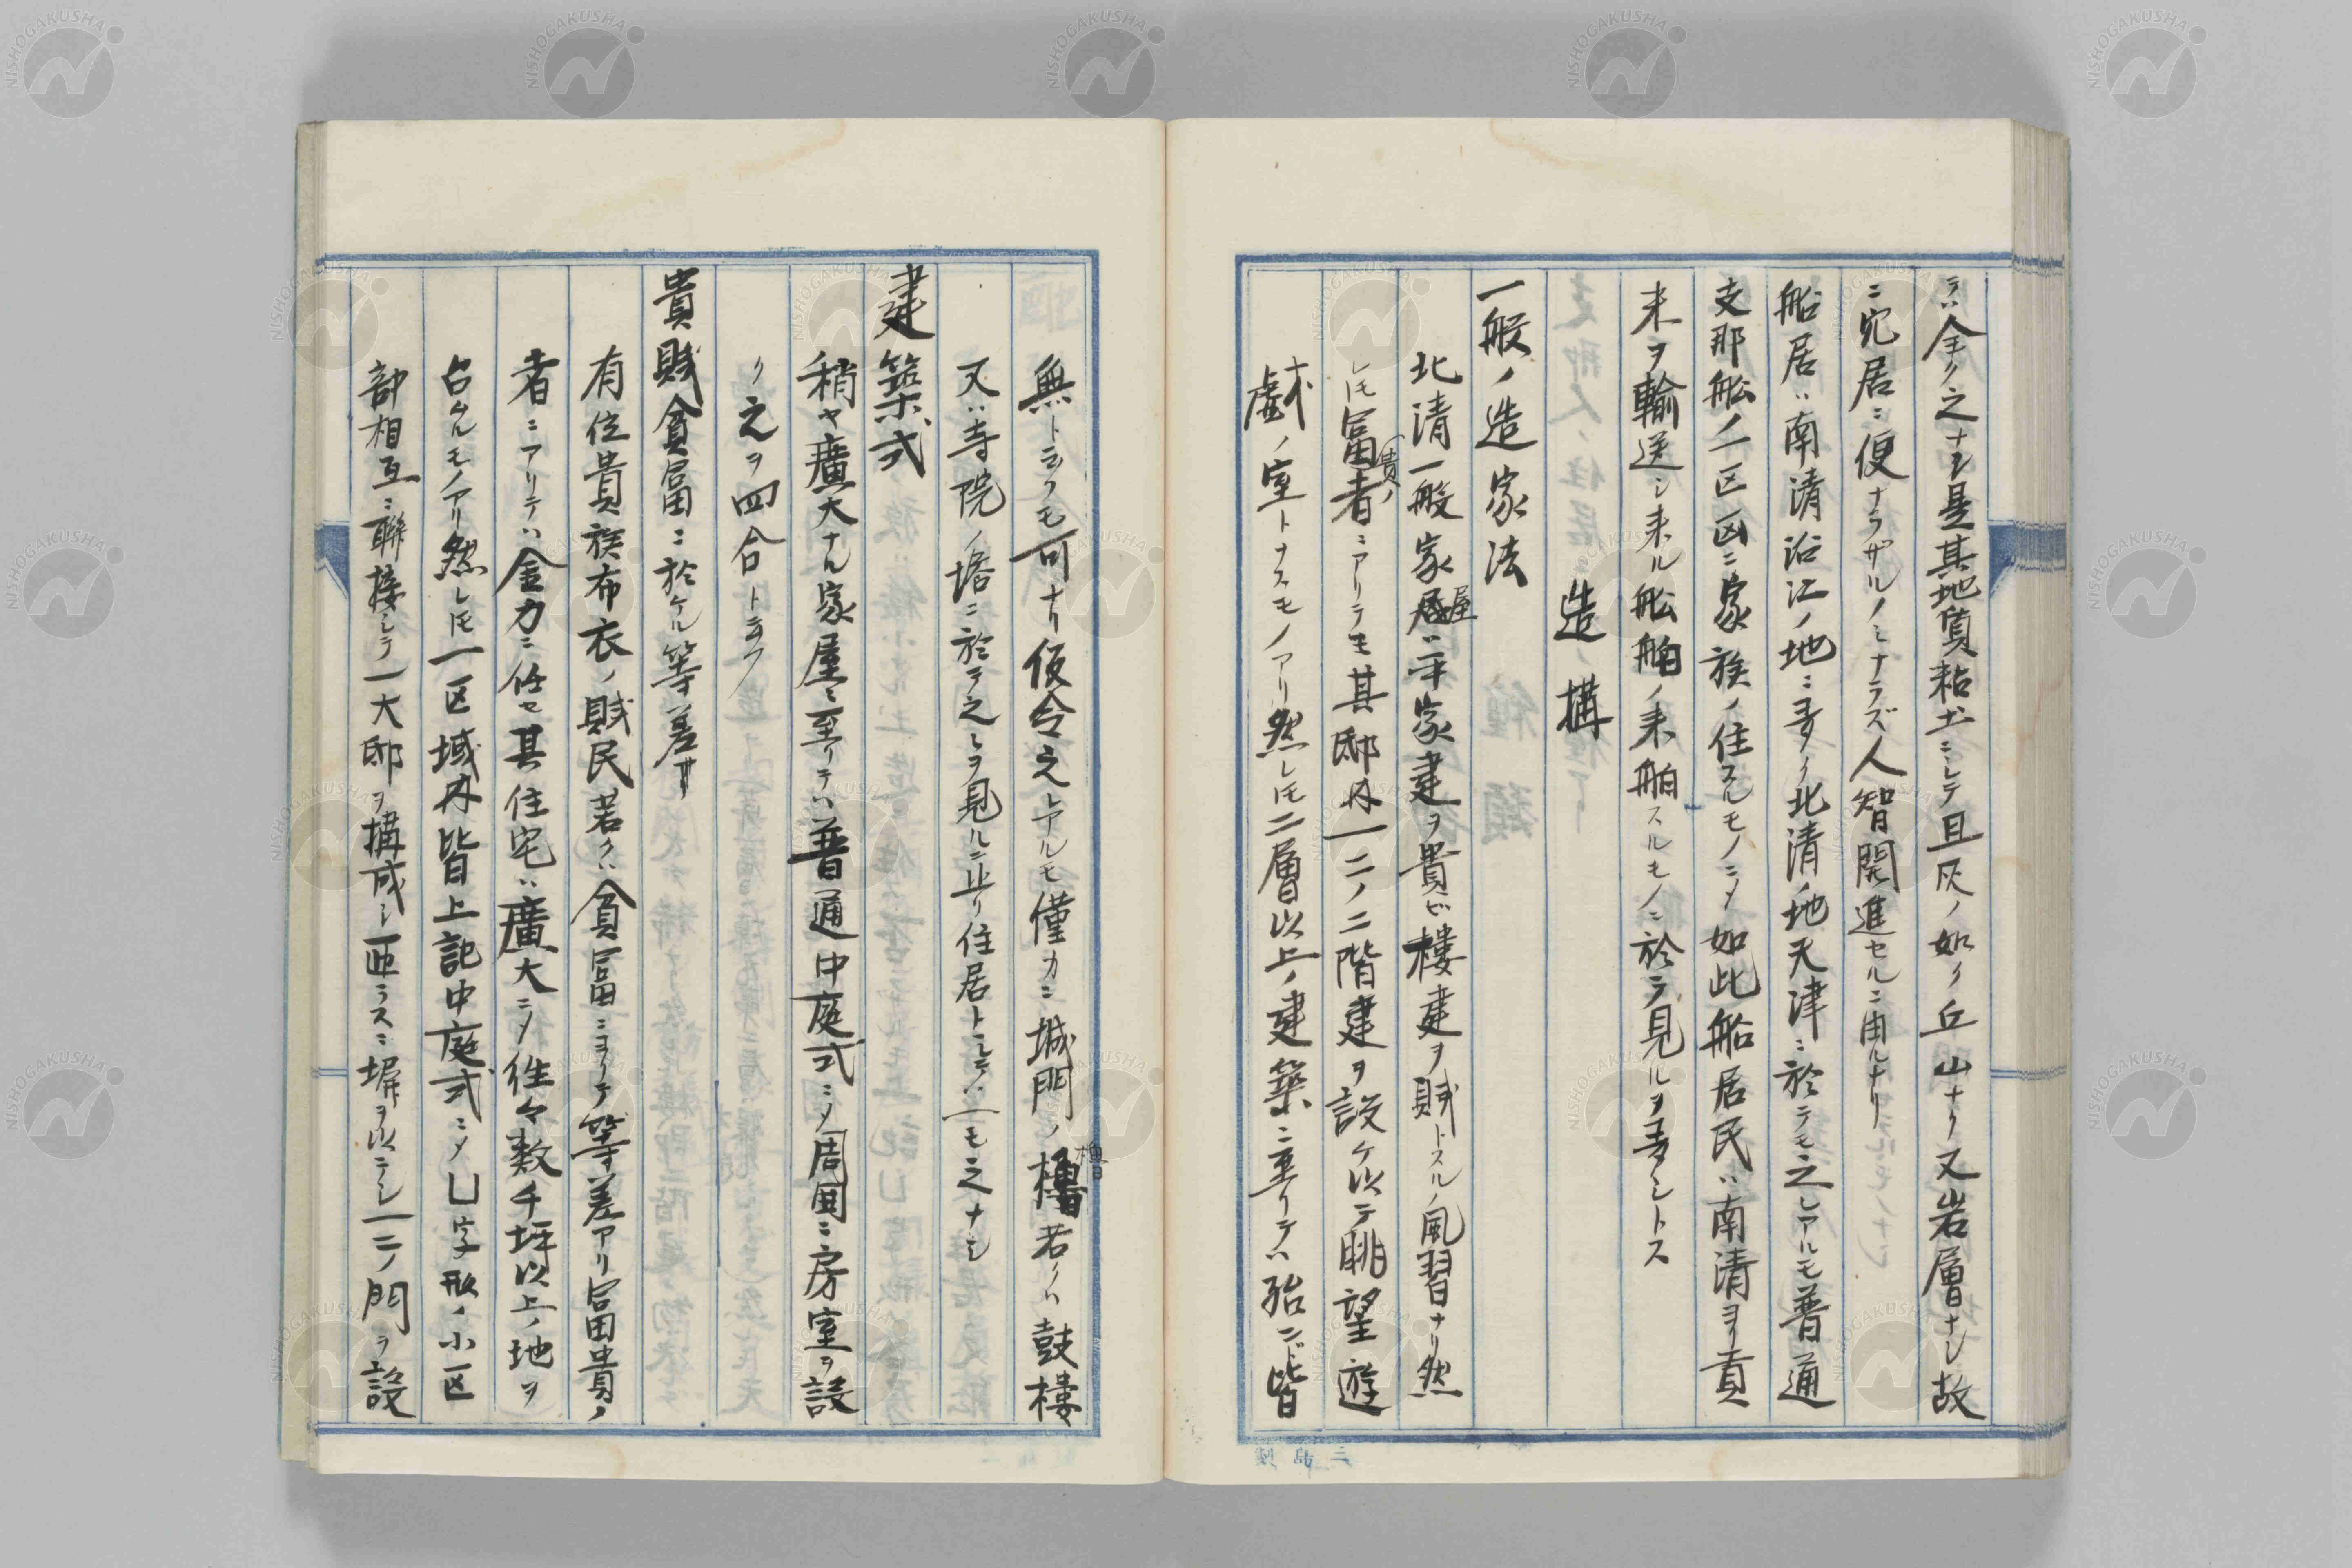 ラハ全ク之ナシ是其地質粘土ニシテ且灰ノ如ク丘山ナク又岩層ナシ故
ニ穴居ニ便ナラザルノミナラズ人智開進セルニ由ルナリ
船居ハ南清沿江ノ地ニ多ク北清ノ地天津ニ於テモ之レアルモ普通
支那船ノ一区画ニ家族ノ住スルモノニメ如此船居民ハ南清ヨリ貢
米ヲ輸送シ来ル船舶ノ来舶スルモノニ於テ見ルヲ多シトス
造構
一般ノ造家法
北清一般家屋ハ平家建ヲ貴ビ樓建ヲ賎トスルノ風習ナリ然
レ𪜈富貴ノ者ニアリテモ其邸内一二ノ二階建ヲ設ケ以テ眺望遊
戯ノ室トナスモノアリ然レ𪜈二層以上ノ建築ニ至リテハ殆ンド皆
無ト云フモ可ナリ仮令之レアルモ僅カニ城門ノ櫓若クハ鼓樓
又ハ寺院ノ塔ニ於テ之レヲ見ルニ止リ住居トシテハ一モ之ナシ
建築式
稍ヤ廣大ナル家屋ニ至リテハ普通中庭式ニメ周囲ニ房室ヲ設
ク之ヲ四合ト云フ
貴賎貧富ニ於ケル等差
有位貴族布衣ノ賎民若クハ貧富ニヨリテ等差アリ富貴ノ
者ニアリテハ金力ニ任セ其住宅ハ廣大ニメ往々数千坪以上ノ地ヲ
占ムルモノアリ然レ𪜈一区域内皆上記中庭式ニメ凵字形ノ小区
部相互ニ聯接シテ一大邸ヲ構成シ匝ラスニ塀ヲ以テシ一二ノ門ヲ設
三島製
NISHOGAKUSHA